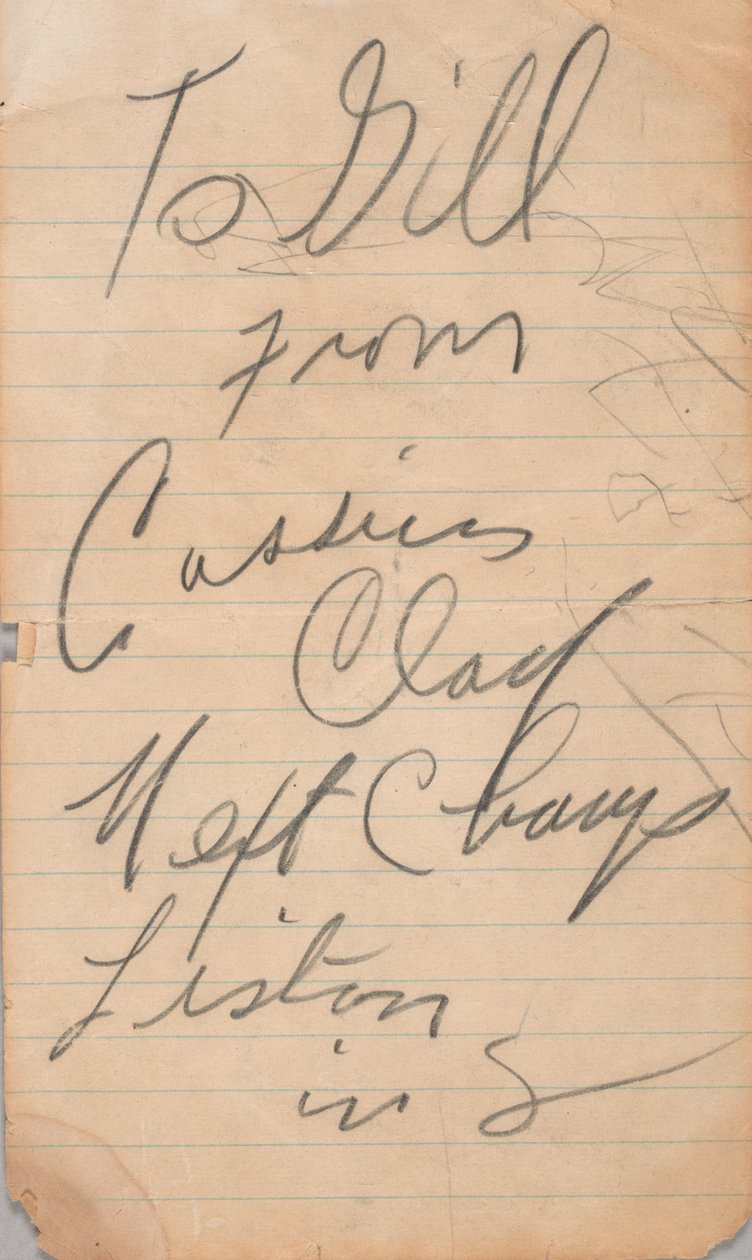 To Gill
From
Cassius
Clay
Next Champ
Liston
in 8